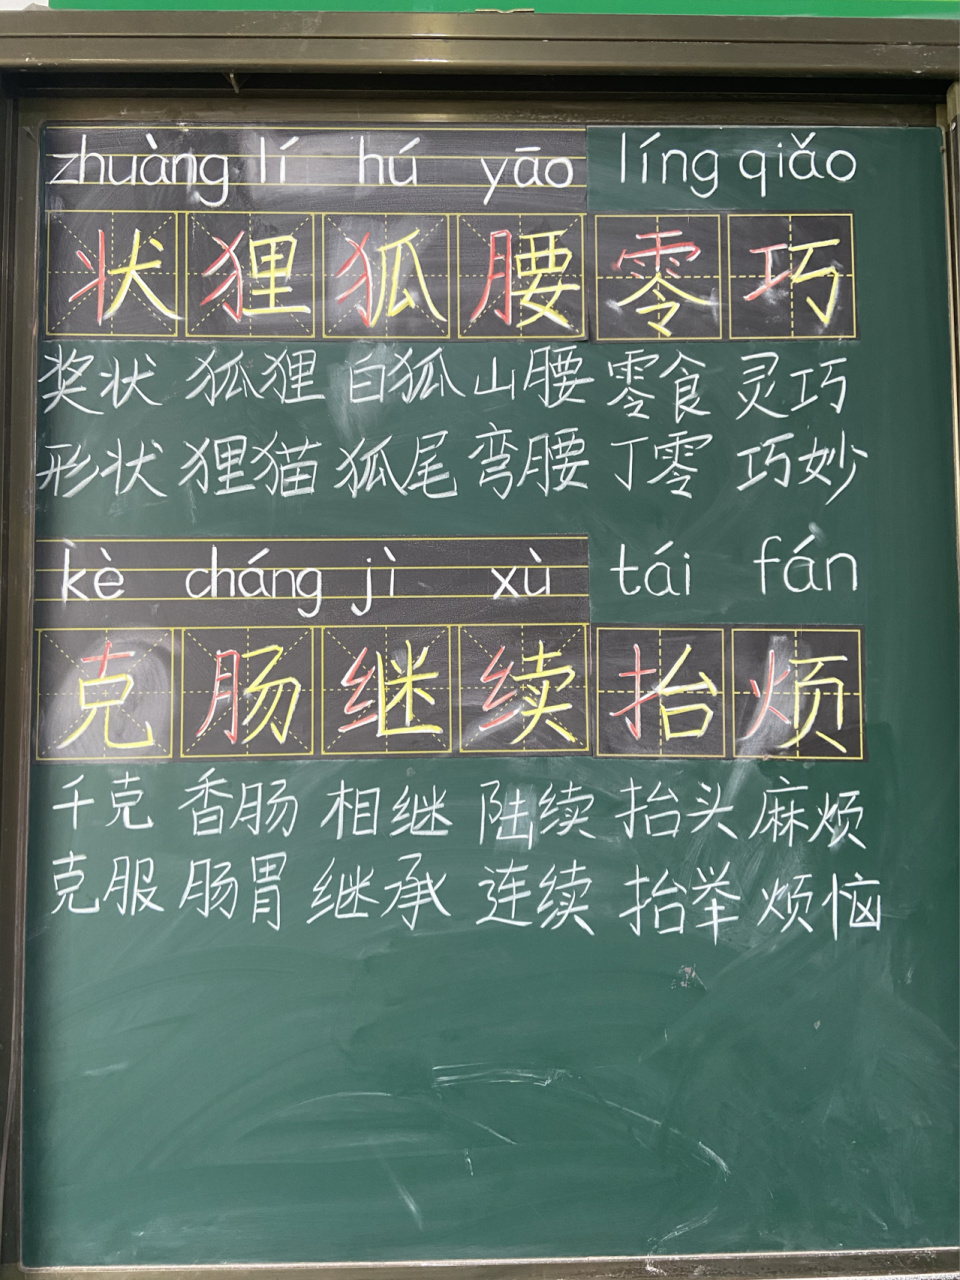 zhuàng lí hú yāo líng qiǎo
状 狸 狐 腰 零 巧
奖状 狐狸 白狐 山腰 零食 灵巧
形状 狸猫 狐尾 弯腰 丁零 巧妙
kè cháng jì xù tái fán
克 肠 继 续 抬 烦
千克 香肠 相继 陆续 抬头 麻烦
克服 肠胃 继承 连续 抬举 烦恼